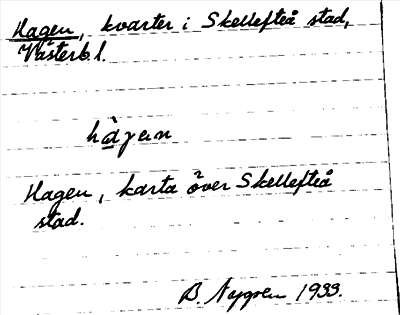 Hagen, kvarter i Skellefteå stad,
Västerb. l.
hàgɐn
Hagen, karta över Skellefteå
stad.
B. Nygren 1933.